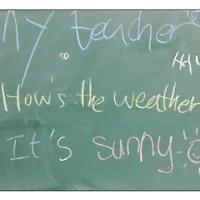 My teacher
How's the weather
It's sunny